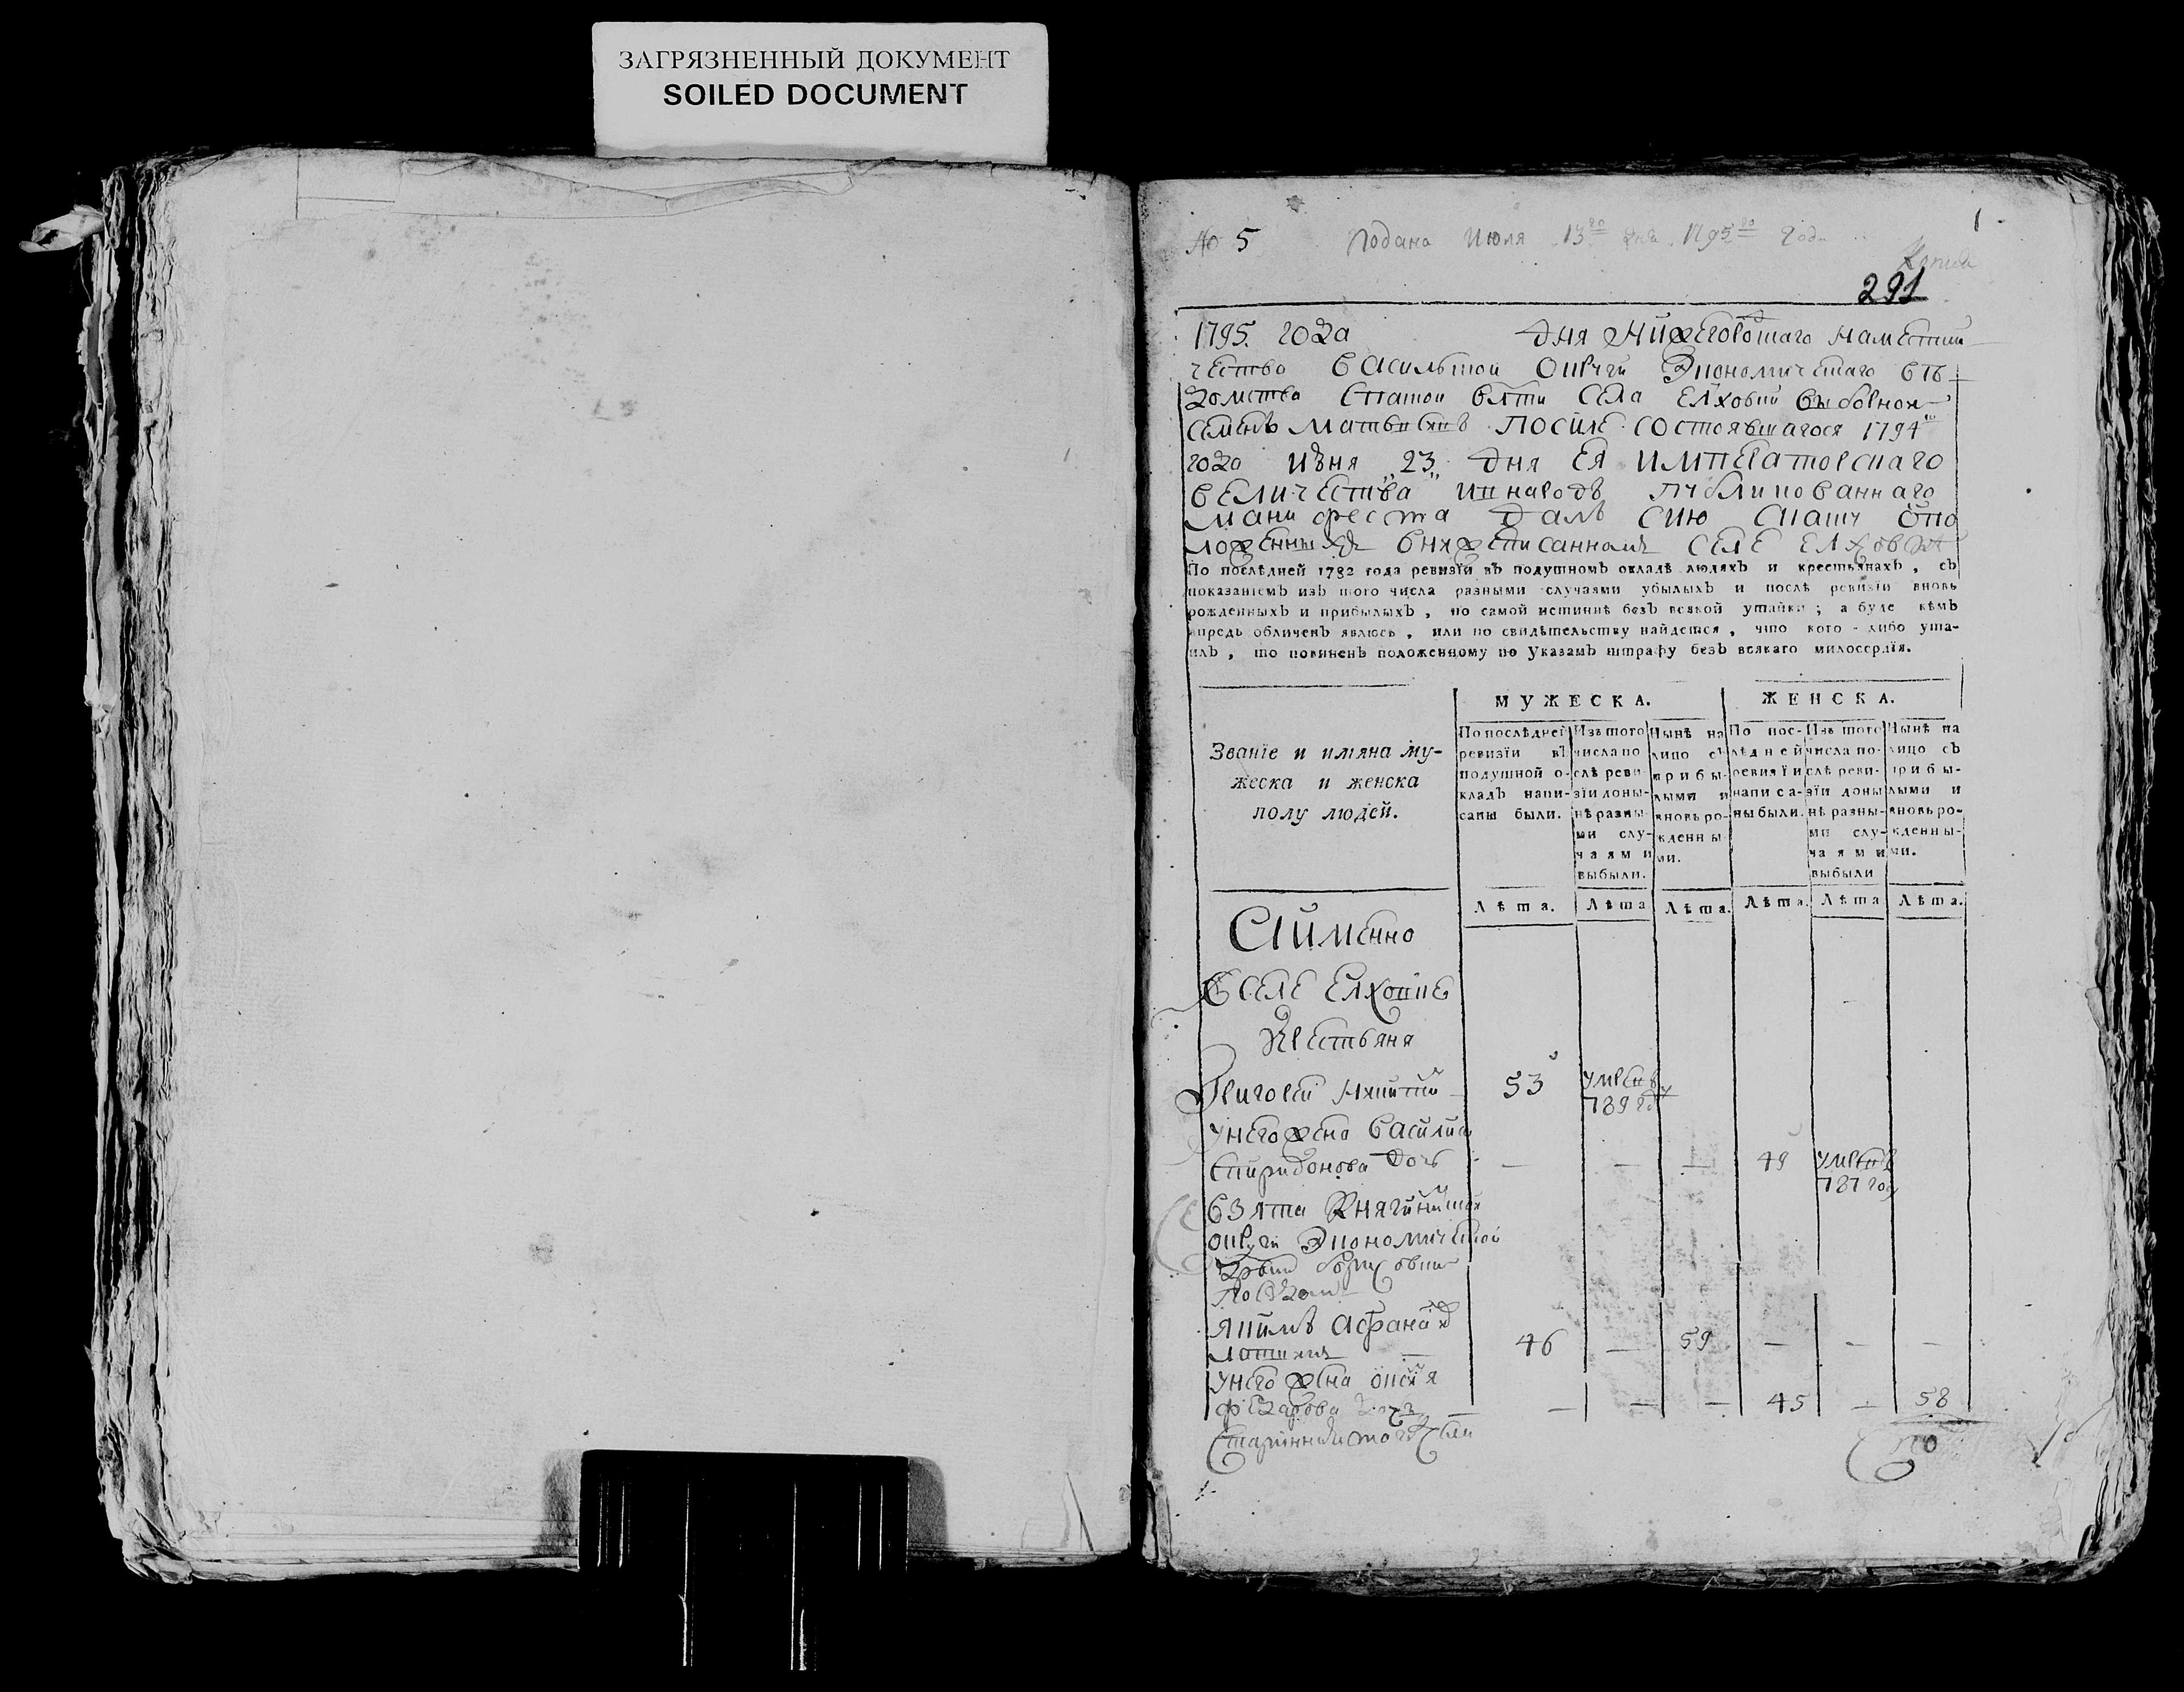 ЗАГРЯЗНЕННЫЙ ДОКУМЕНТ
SOILED DOCUMENT
№ 5 Подана Июля 13го дня 1795го Года
1
Копия
291
1795. года Дня Нижегороцкаго намѣстни
чества Васильской округи Экономическаго вѣ
домства села Елховки выборной
семенъ после состоявшагося 1794го
года июня "23" дня ЕЯ императорскаго
величества и народъ публикованнаго
манифеста далъ сию скаску о по
ложенныхъ внижеписанномъ селе Елховке
По послѣдней 1782 года ревизїи въ подушномъ окладѣ людяхъ и крестьянахъ, съ
показанїемъ изъ того числа разными случаями убылыхъ и послѣ ревизїи вновь
рожденныхъ и прибылыхъ, по самой истиннѣ безъ всякой утайки; а буде кѣмъ
впредь обличенъ явлюсь, или по свидѣтельству найдется, что кого-либо ута-
илъ, то повиненъ положенному по указамъ штрафу безъ всякаго милосердїя.
МУЖЕСКА. ЖЕНСКА.
Званїе и имяна му-
жеска и женска
полу людей.
По послѣдней
ревизїи въ
подушной о-
кладъ напи-
саны были.
Изъ того
числа по
слѣ реви-
зїи доны-
нѣ разны-
ми слу-
чаями
выбыли.
Нынѣ на
лицо съ
прибы-
лыми и
вновь ро-
жденны-
ми.
По пос-
лѣдней
ревизїи
написа-
ны были.
Изъ того
числа по-
слѣ реви-
зїи доны
нѣ разны-
ми слу-
чаями
выбыли
Нынѣ на
лицо съ
прибы-
лыми и
вновь ро-
жденны-
ми.
Лѣта. Лѣта Лѣта. Лѣта. Лѣта Лѣта.
А имянно
В селе Елховке
Крестьяня
Григорей Никитин 53 умре въ
789 году
у него жена Василиса
Спиридонова дочь — — — 49 умре въ
787 году
взята Княгининской
округи Экономической
Якимъ Афанасьевъ
46 — 59 — — —
у него жена
Федорова дочь — — — 45 — 58